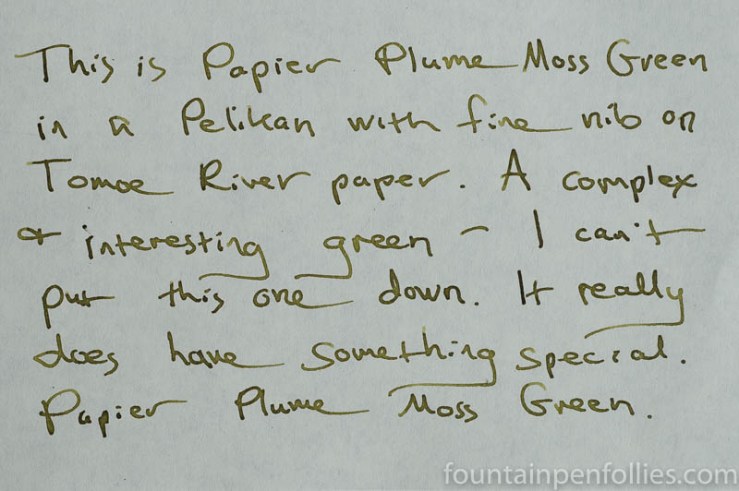 This is Papier Plume Moss Green
in a Pelikan with fine nib on
Tomoe River paper. A complex
& interesting green - I can't
put this one down. It really
does have something special.
Papier Plume Moss Green.
fountainpenfollies.com